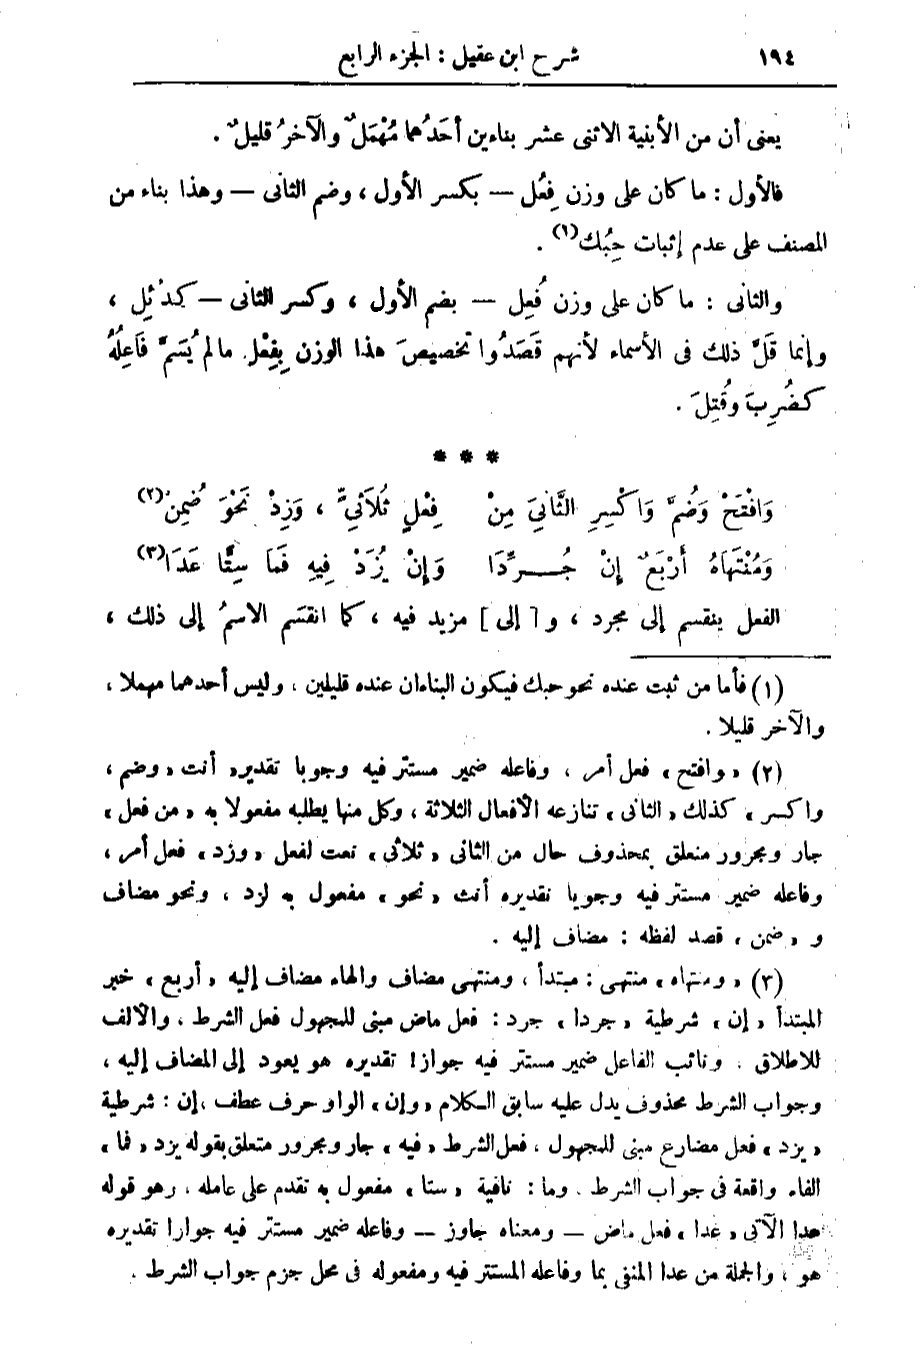 ١٩٤ شرح ابن عقيل : الجزء الرابع
يعنى أن من الأبنية الاثنى عشر بناءين أحَدُهما مُهْمَلٌ والآخرُ قليلٌ .
فالأول : ما كان على وزن فِعُل — بكسر الأول ، وضم الثانى — وهذا بناء من
المصنف على عدم إثبات حِبُك (١) .
والثانى : ما كان على وزن فُعِل — بضم الأول ، وكسر الثانى — كدُئِل ،
وإنما قَلَّ ذلك فى الأسماء لأنهم قَصَدُوا تخصيصَ هذا الوزن بِفِعْلِ مالم يُسَمَّ فَاعِلُهُ
كضُرِبَ وقُتِلَ .
* * *
وَافْتَحْ وَضُمَّ وَاكْسِرِ الثَّانِىَ مِنْ فِعْلٍ ثُلاَثِىٍّ ، وَزِدْ نَحْوَ ضُمِنْ (٢)
وَمُنْتَهَاهُ أَرْبَعٌ إِنْ جُــرِّدَا وَإِنْ يُزَدْ فِيهِ فَمَا سِتًّا عَدَا (٣)
الفعل ينقسم إلى مجرد ، و [ إلى ] مزيد فيه ، كما انقسَم الاسمُ إلى ذلك ،
(١) فأما من ثبت عنده نحو حبك فيكون البناءان عنده قليلين ، وليس أحدهما مهملا ،
والآخر قليلا .
(٢) « وافتح » فعل أمر ، وفاعله ضمير مستتر فيه وجوبا تقديره أنت « وضم ،
واكسر » كذلك « الثانى » تنازعه الأفعال الثلاثة ، وكل منها يطلبه مفعولا به « من فعل »
جار ومجرور متعلق بمحذوف حال من الثانى « ثلاثى » نعت لفعل « وزد » فعل أمر ،
وفاعله ضمير مستتر فيه وجوبا تقديره أنت « نحو » مفعول به لزد ، ونحو مضاف
و « ضمن » قصد لفظه : مضاف إليه .
(٣) « ومنتهاه » منتهى : مبتدأ ، ومنتهى مضاف والهاء مضاف إليه « أربع » خبر
المبتدأ « إن » شرطية « جردا » جرد : فعل ماض مبنى للمجهول فعل الشرط ، والألف
للاطلاق ، ونائب الفاعل ضمير مستتر فيه جوازا تقديره هو يعود إلى المضاف إليه ،
وجواب الشرط محذوف يدل عليه سابق الكلام « وإن » الواو حرف عطف ، إن : شرطية
« يزد » فعل مضارع مبنى للمجهول ، فعل الشرط « فيه » جار ومجرور متعلق بقوله يزد « فما »
الفاء واقعة فى جواب الشرط . وما : نافية « ستا » مفعول به تقدم على عامله ، وهو قوله
عدا الآتى « عدا » فعل ماض — ومعناه جاوز — وفاعله ضمير مستتر فيه جوازا تقديره
هو ، والجملة من عدا المنفى بما وفاعله المستتر فيه ومفعوله فى محل جزم جواب الشرط .